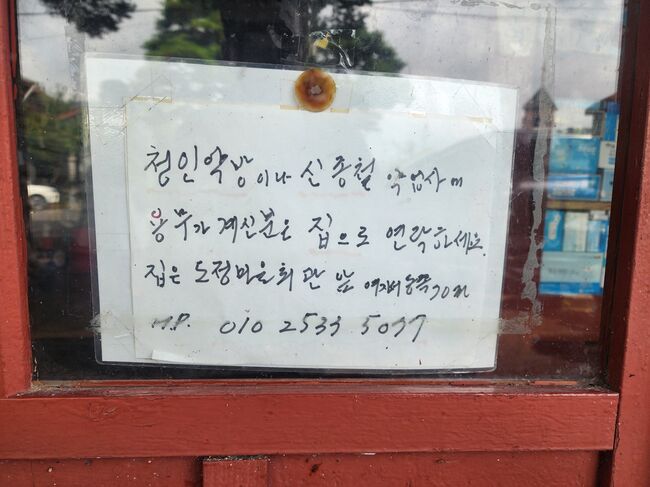 청인약방이나 신종철 약업사에
용무가 계신분은 집으로 연락하세요.
집은 도정마을회관 앞 70m
H.P. 010 2533 5077